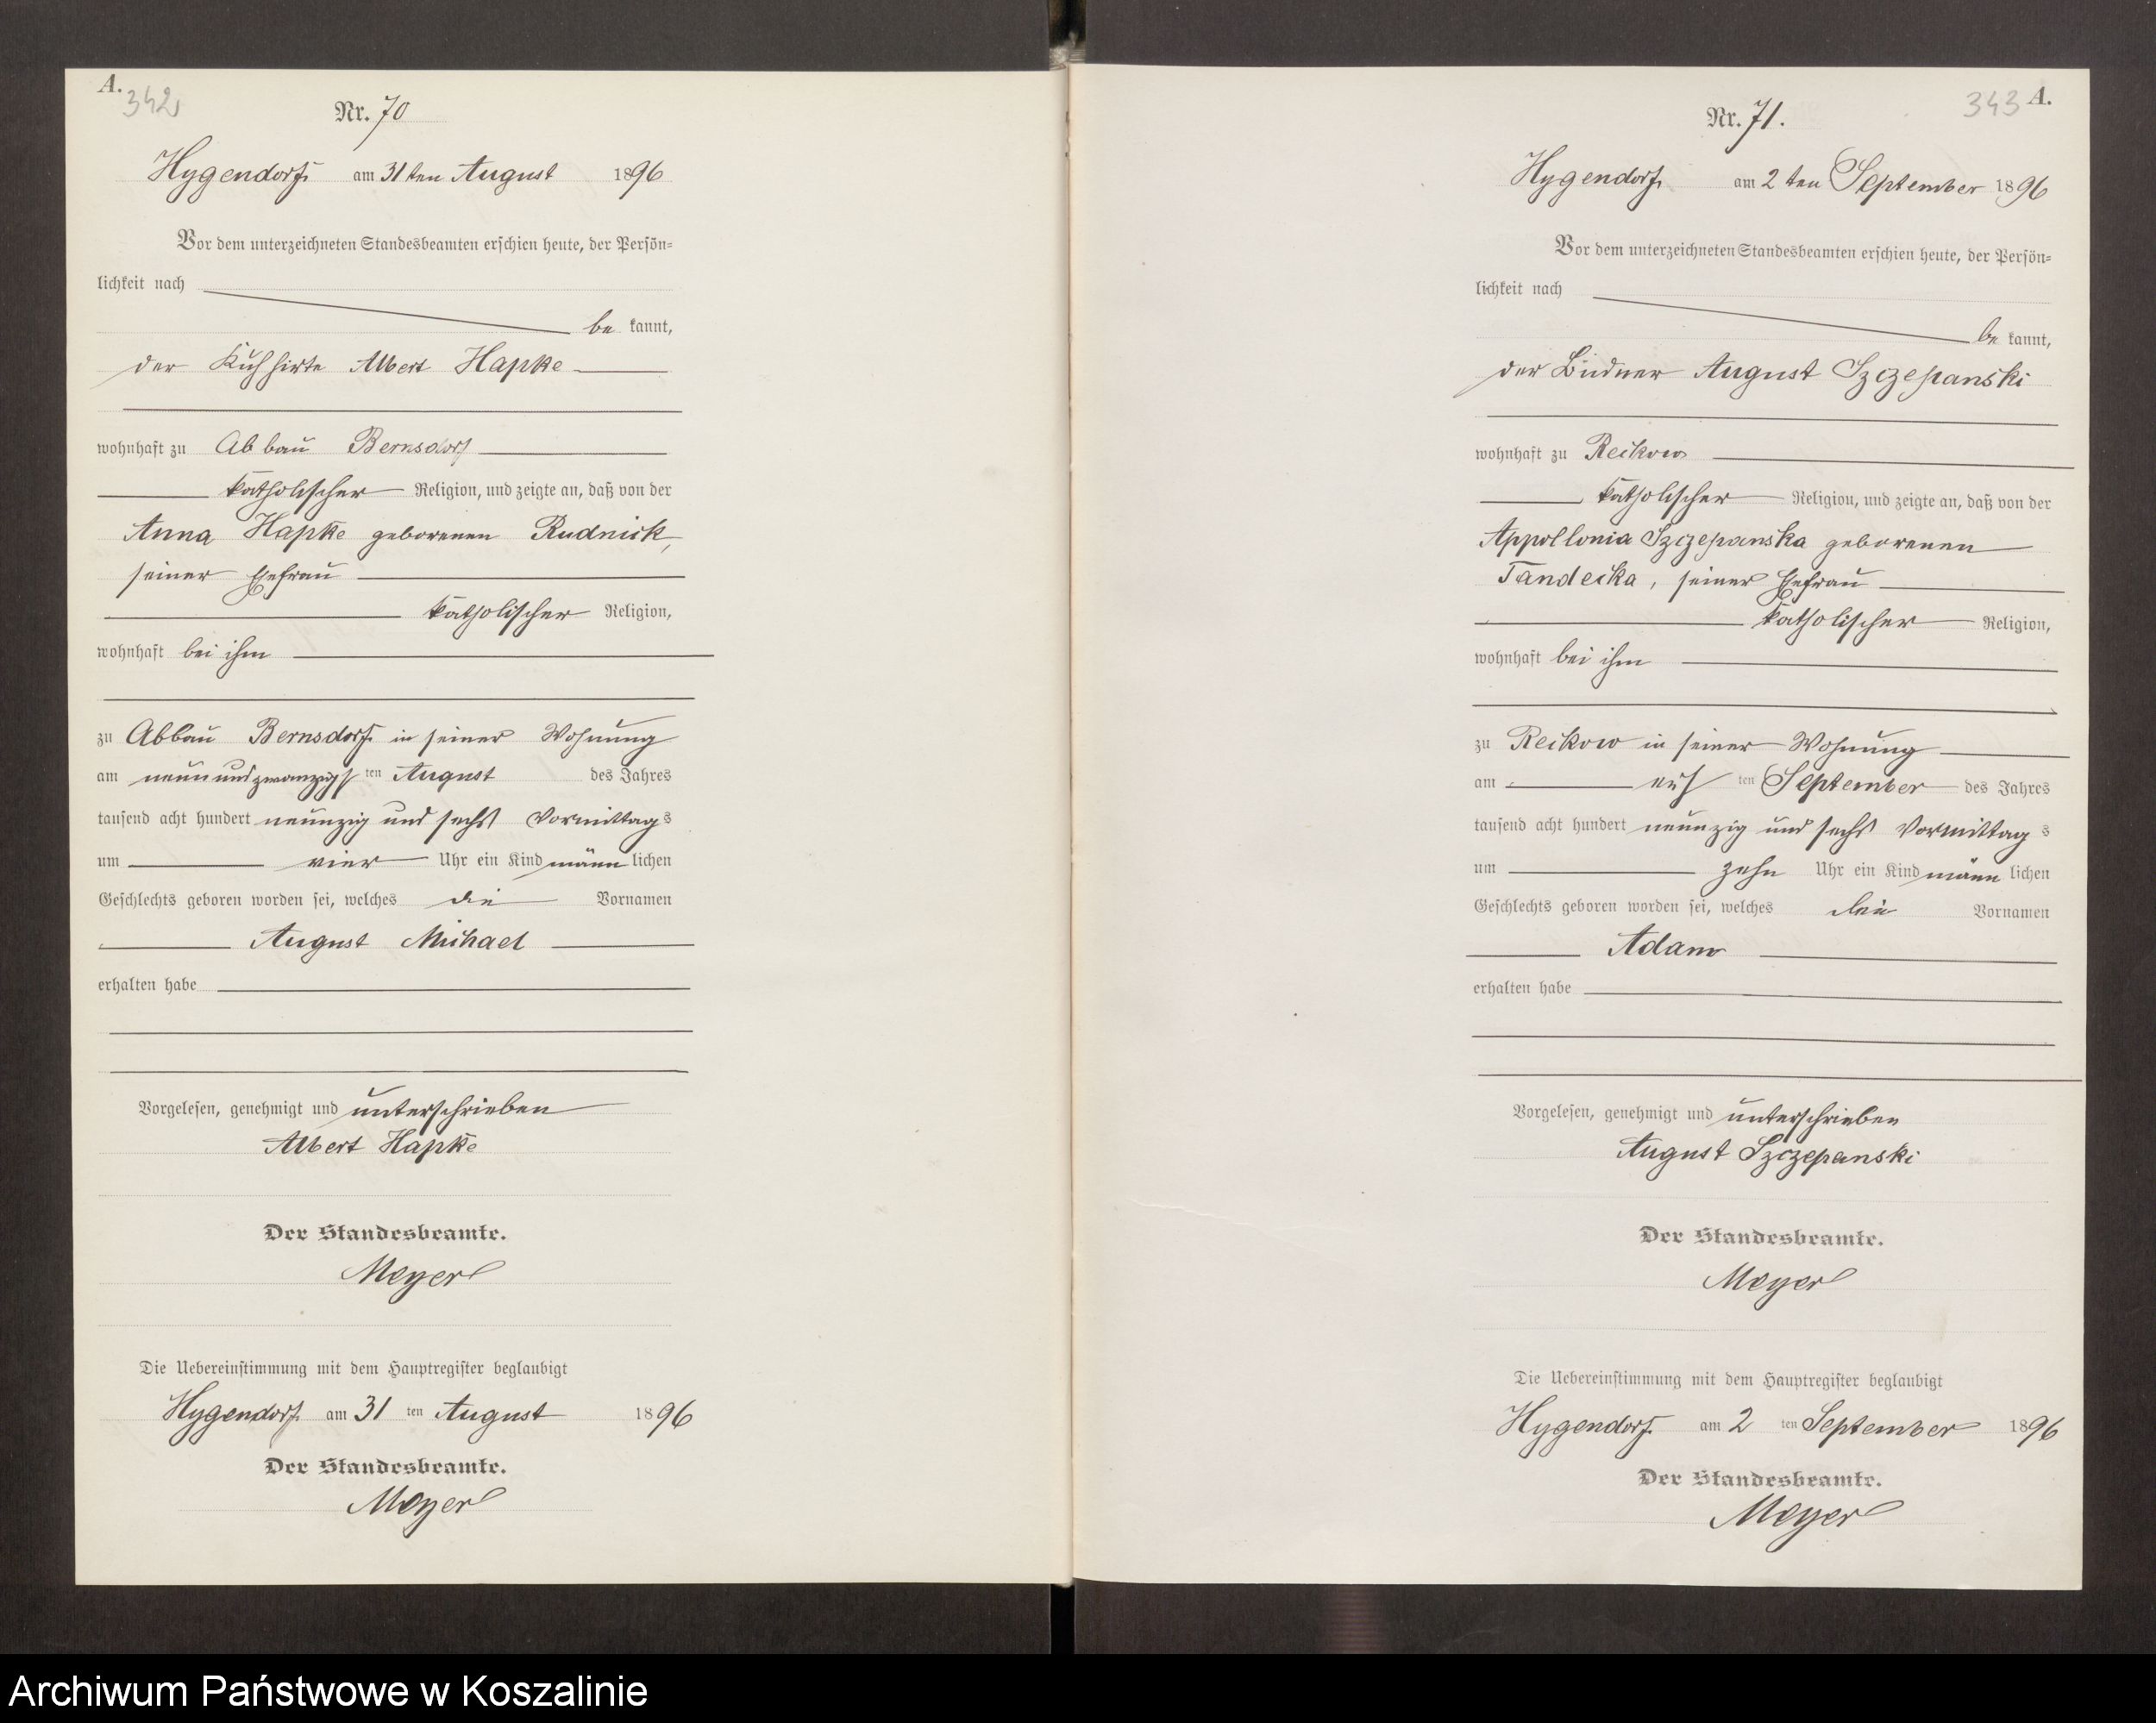 A.
342
Nr. 70
Hygendorf am 31ten August 1896
Vor dem unterzeichneten Standesbeamten erschien heute, der Persön=
lichkeit nach
be kannt,
der Kuhhirte Albert Hapke
wohnhaft zu Abbau Bernsdorf
katholischer Religion, und zeigte an, daß von der
Anna Hapke geborenen Rudnick,
seiner Ehefrau
katholischer Religion,
wohnhaft bei ihm
zu Abbau Bernsdorf in seiner Wohnung
am neunundzwanzigsten August des Jahres
tausend acht hundert neunzig und sechs Vormittags
um vier Uhr ein Kind männlichen
Geschlechts geboren worden sei, welches die Vornamen
August Michael
erhalten habe
Vorgelesen, genehmigt und unterschrieben
Albert Hapke
Der Standesbeamte.
Meyer
Die Uebereinstimmung mit dem Hauptregister beglaubigt
Hygendorf am 31 ten August 1896
Der Standesbeamte.
Meyer
343 A.
Nr. 71.
Hygendorf am 2 ten September 1896
Vor dem unterzeichneten Standesbeamten erschien heute, der Persön=
lichkeit nach
be kannt,
der Büdner August Szczepanski
wohnhaft zu Reikow
katholischer Religion, und zeigte an, daß von der
Appollonia Szczepanska geborenen
Tandecka, seiner Ehefrau
katholischer Religion,
wohnhaft bei ihm
zu Reikow in seiner Wohnung
am ersten September des Jahres
tausend acht hundert neunzig und sechs Vormittags
um zehn Uhr ein Kind männlichen
Geschlechts geboren worden sei, welches den Vornamen
Adam
erhalten habe
Vorgelesen, genehmigt und unterschrieben
August Szczepanski
Der Standesbeamte.
Meyer
Die Uebereinstimmung mit dem Hauptregister beglaubigt
Hygendorf am 2 ten September 1896
Der Standesbeamte.
Meyer
Archiwum Państwowe w Koszalinie